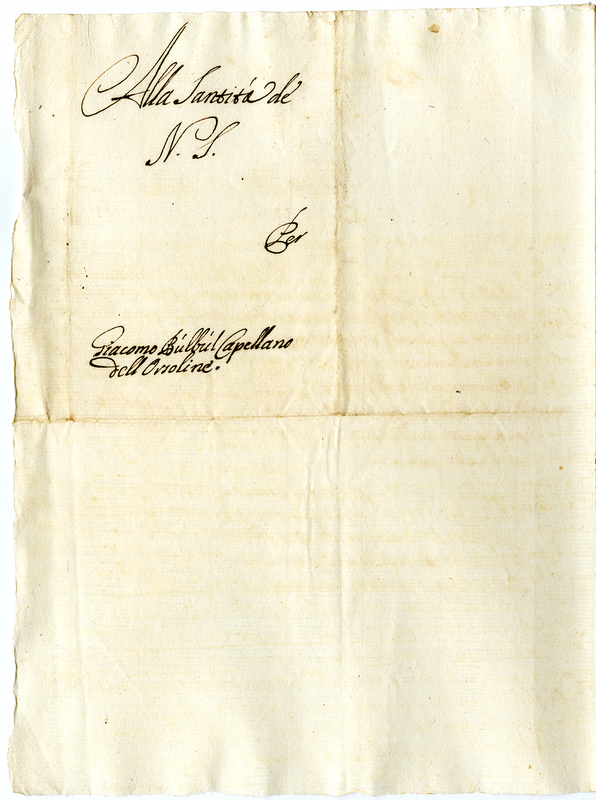 Alla Santità de
N. S.
Per
Giacomo Búlbúl Capellano
dell Orsoline.